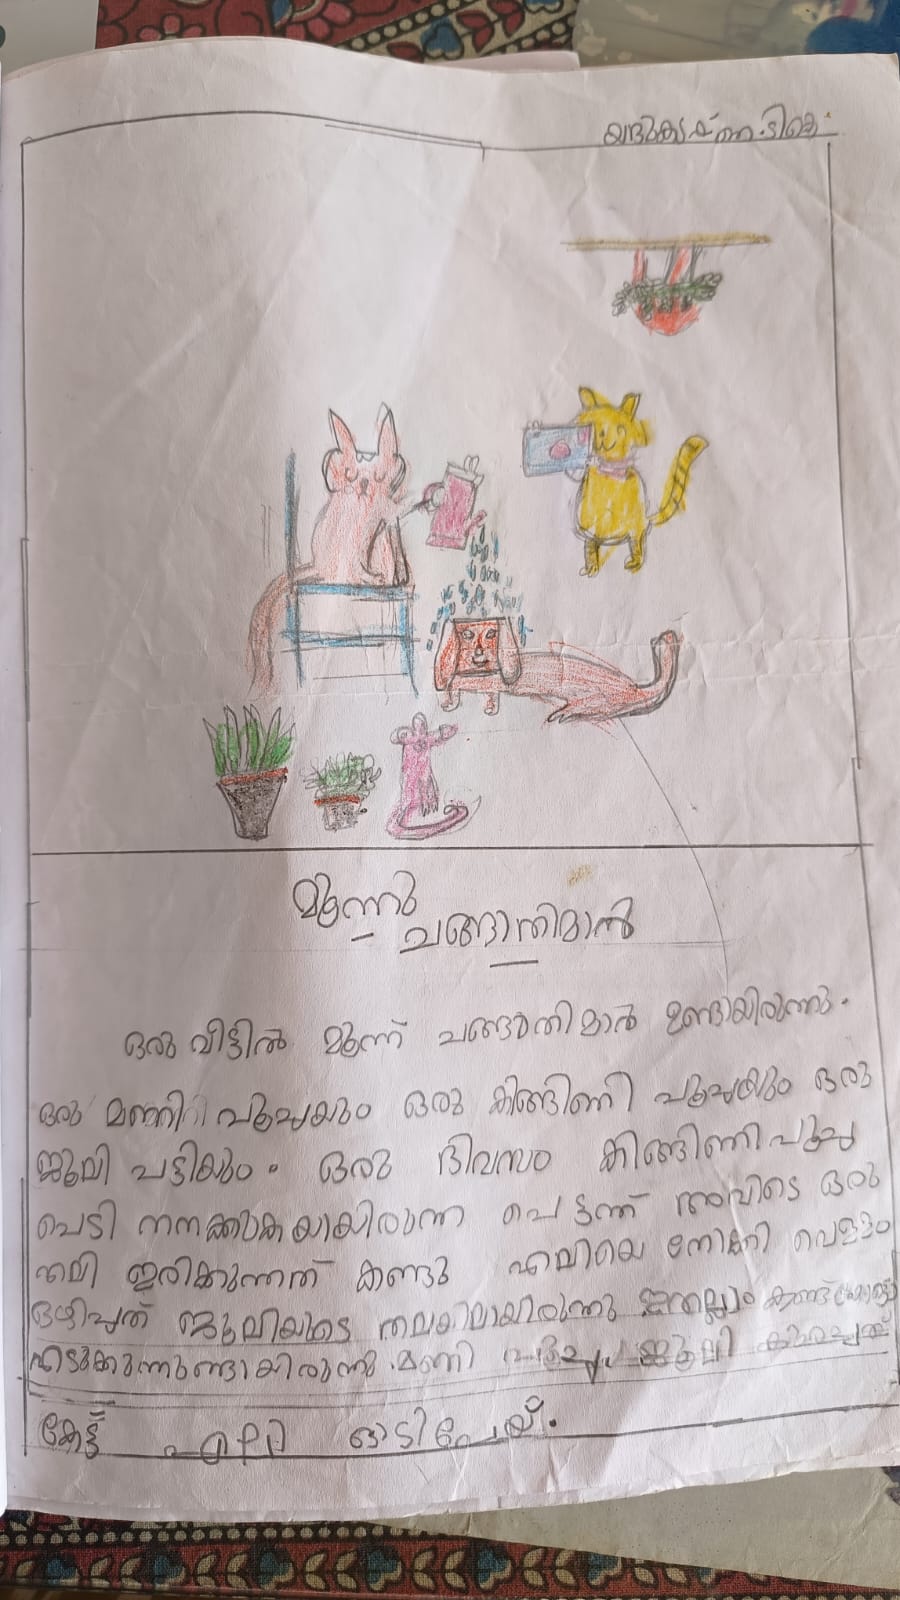 യദുകൃഷ്ണ.ടി.കെ
മൂന്നു
ചങ്ങാതിമാർ
ഒരു വീട്ടിൽ മൂന്ന് ചങ്ങാതിമാർ ഉണ്ടായിരുന്നു.
ഒരു മണി പൂച്ചയും ഒരു കിങ്ങിണി പൂച്ചയും ഒരു
ജൂലി പട്ടിയും. ഒരു ദിവസം കിങ്ങിണി പൂച്ച
ചെടി നനക്കുകയായിരുന്ന പെട്ടന്ന് അവിടെ ഒരു
എലി ഇരിക്കുന്നത് കണ്ടു എലിയെ നോക്കി വെളളം
ഒഴിച്ചത് ജൂലിയുടെ തലയിലായിരുന്നു ഇതെല്ലാം കണ്ട്
എടുക്കുന്നുണ്ടായിരുന്നു. മണി പൂച്ച ജൂലി കുരച്ചത്
കേട്ട് എലി ഓടിപോയി.